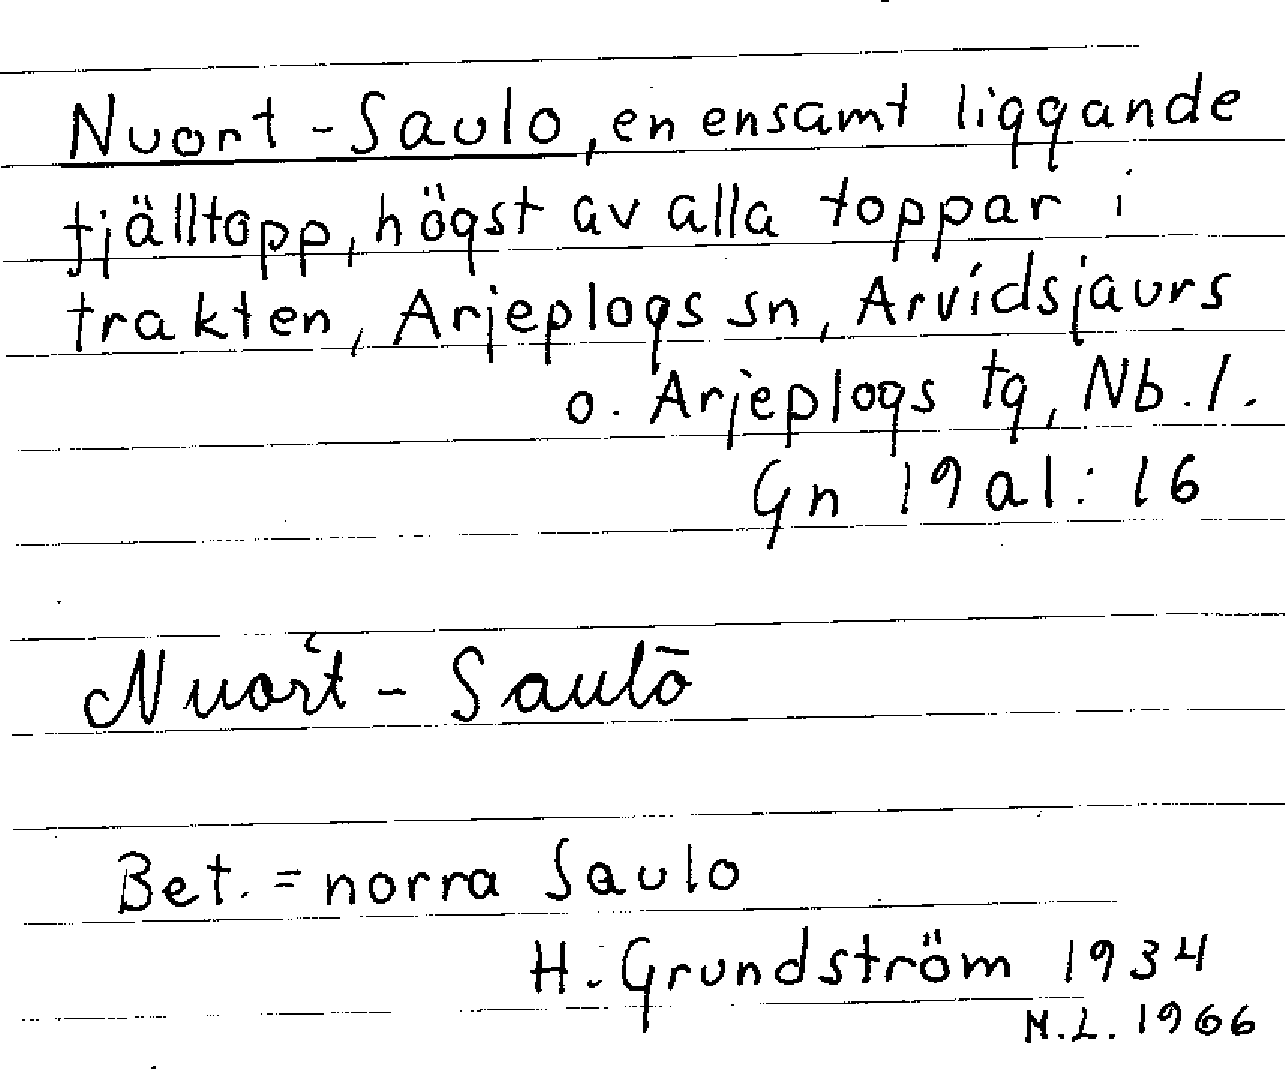 Nuort-Saulo, en ensamt liggande
fjälltopp, högst av alla toppar i
trakten, Arjeplogs sn, Arvidsjaurs
o. Arjeplogs tg, Nb.l.
Gn 19 a1:16
Nuorˈt-Saulō
Bet. = norra Saulo
H. Grundström 1934
M.L. 1966